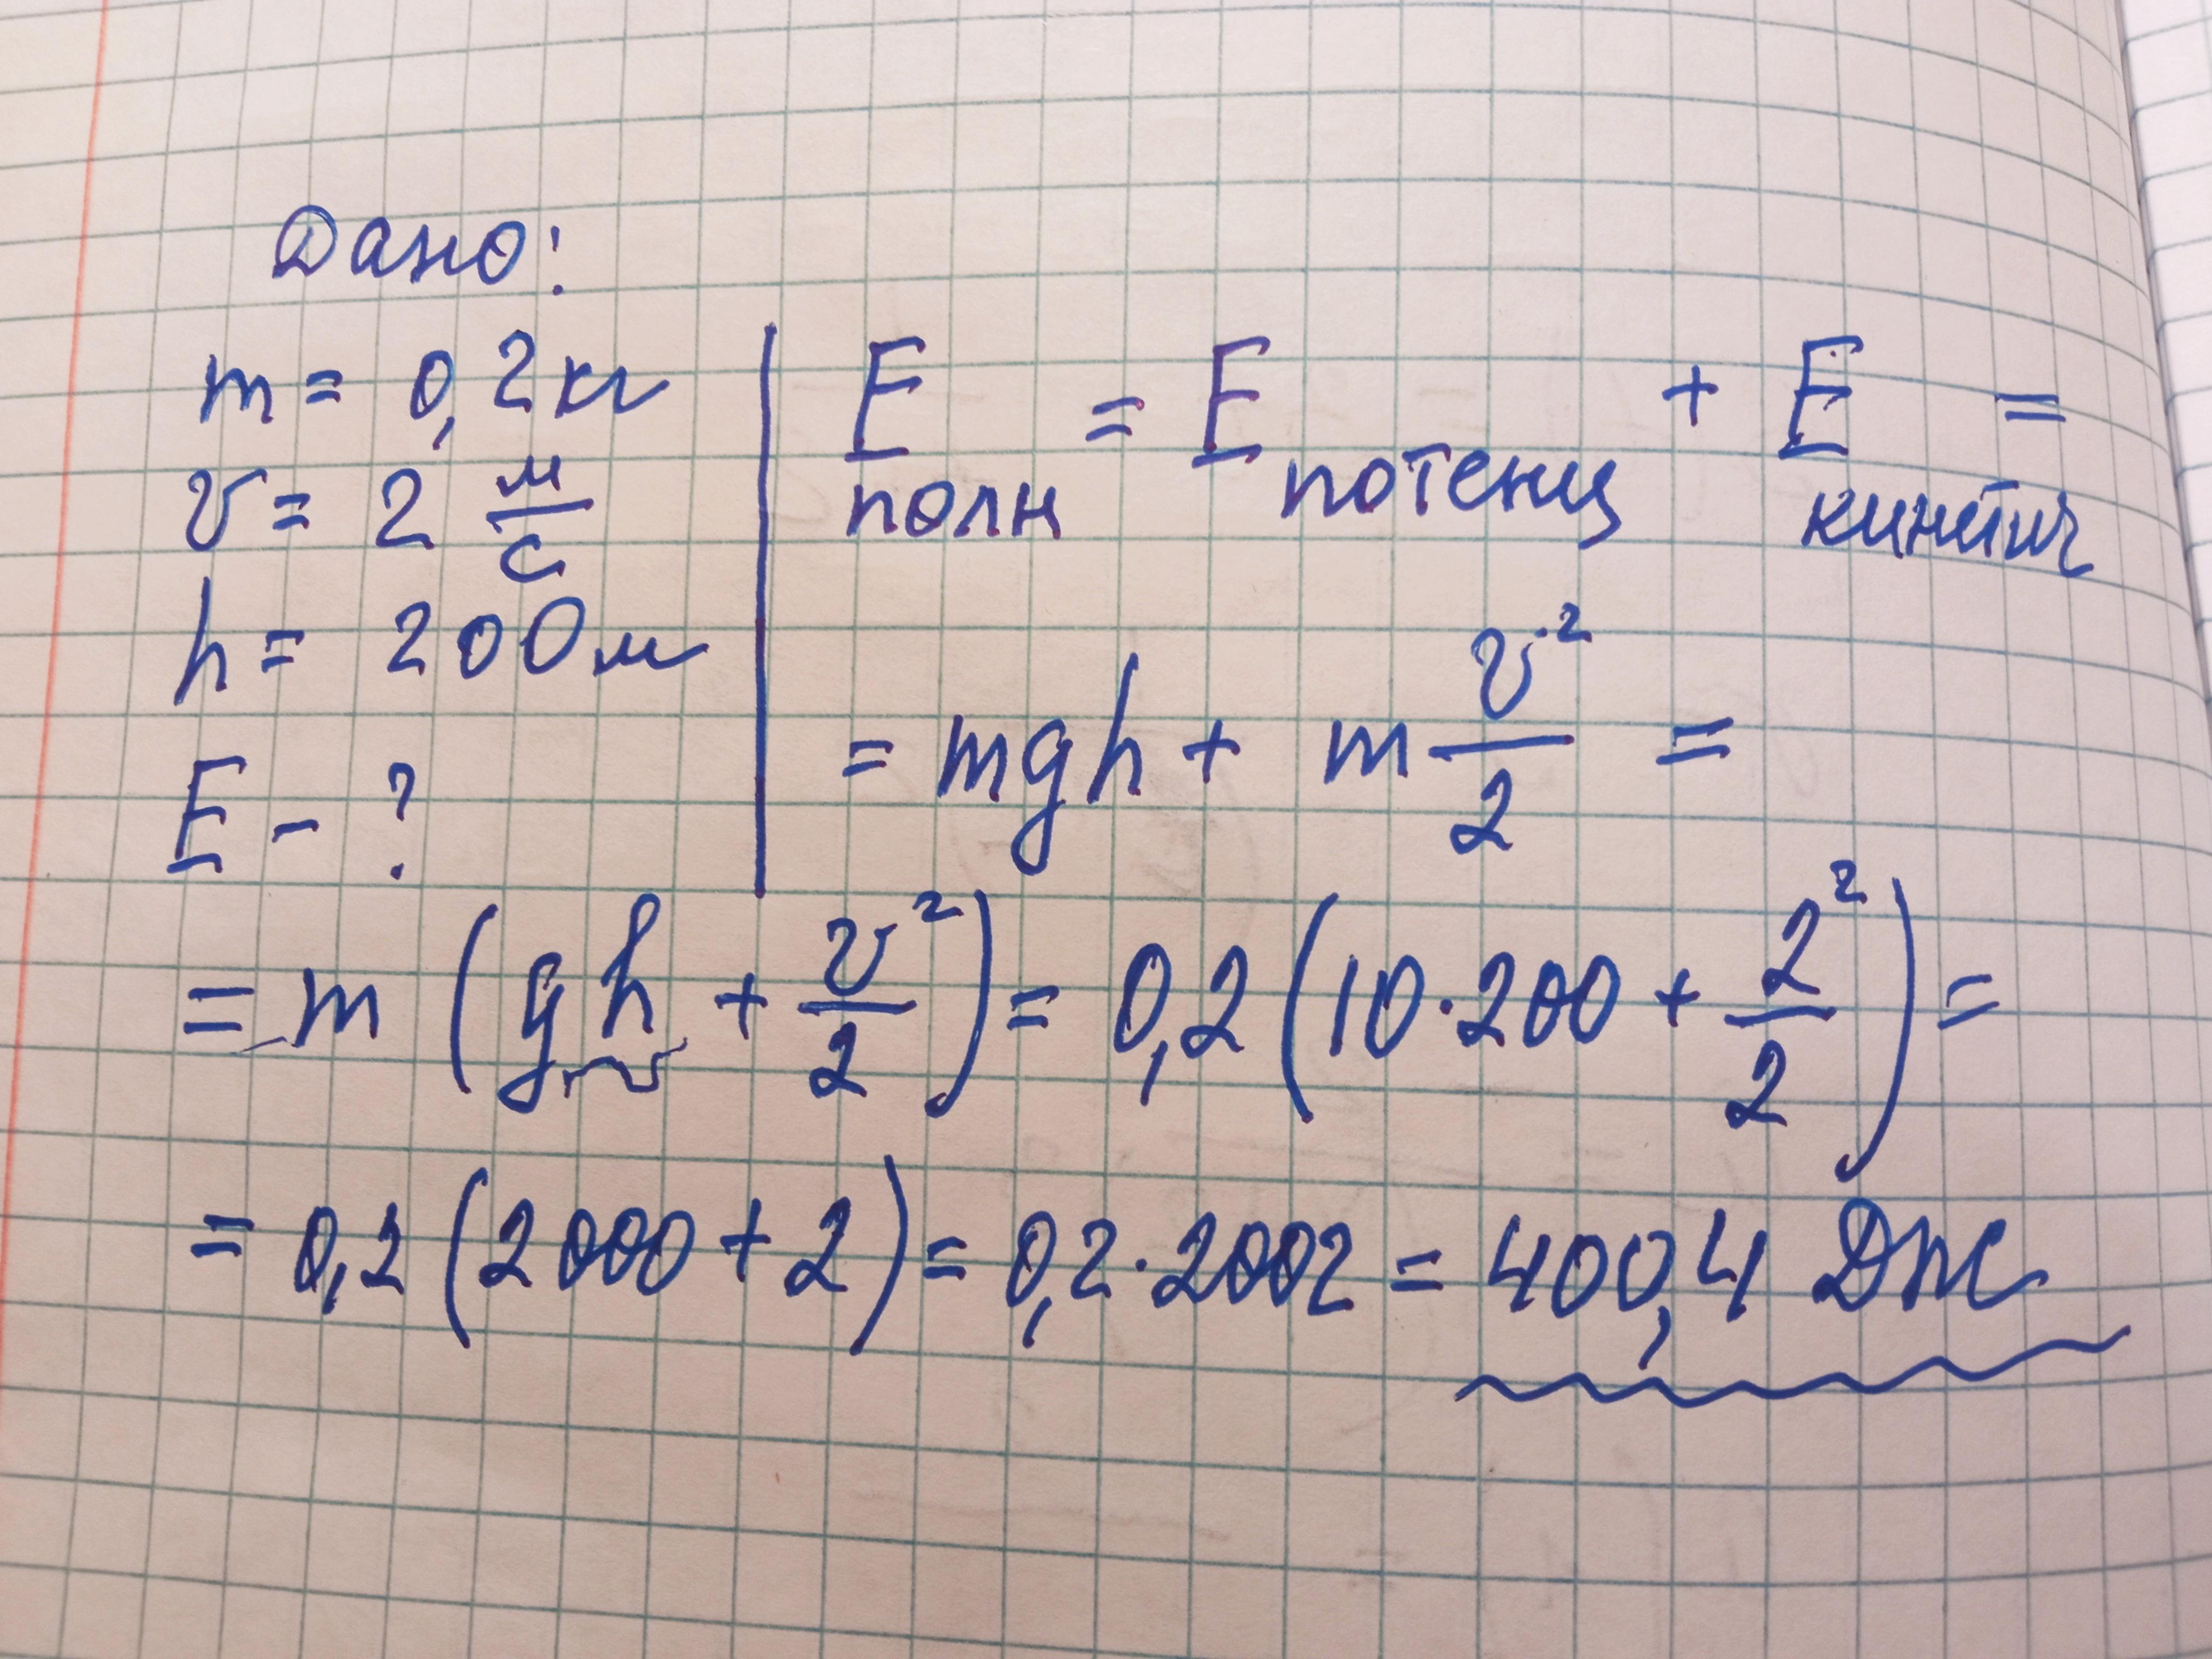 Дано:
m = 0,2 кг
v = 2 м/с
h = 200 м
E - ?
E полн = E потенц + E кинетич =
= mgh + m v²/2 =
= m (gh + v²/2) = 0,2 (10·200 + 2²/2) =
= 0,2 (2000 + 2) = 0,2·2002 = 400,4 Дж